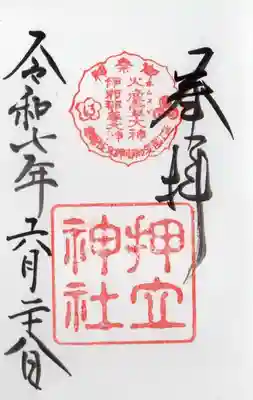 奉拝
押立
神社
御祭神
火産霊大神
伊邪那美大神
令和七年六月二十八日